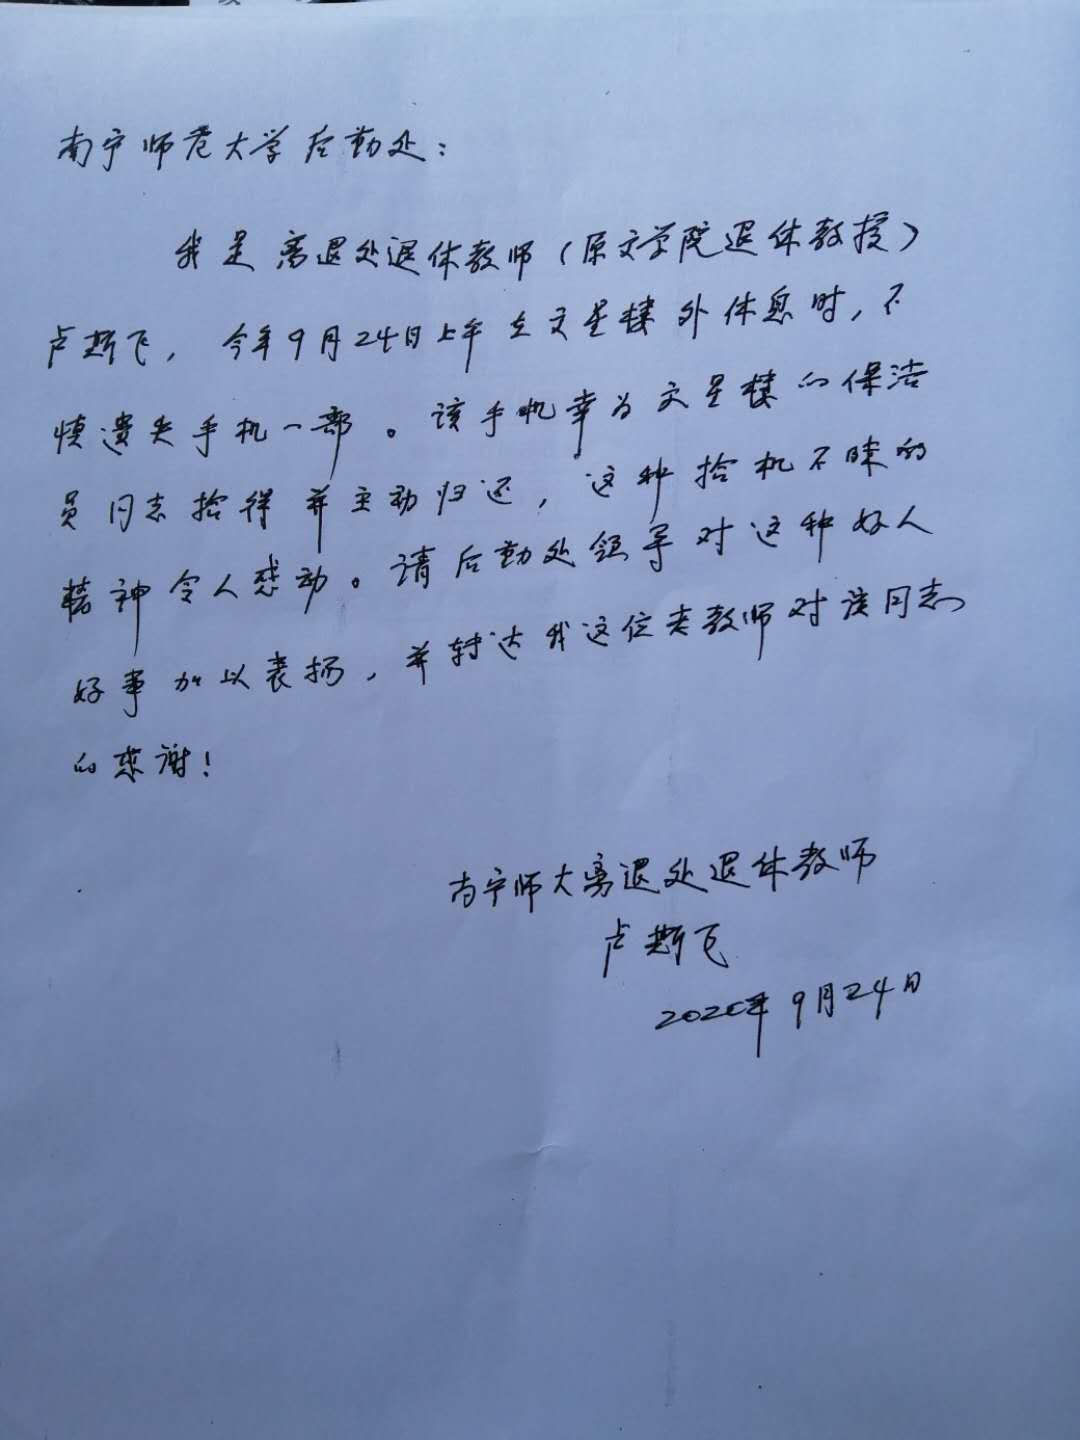 南宁师范大学后勤处：
我是离退处退休教师（原文学院退休教授）
卢斯飞，今年9月24日上午在文星楼外休息时，不
慎遗失手机一部。该手机幸为文星楼的保洁
员同志拾得并主动归还，这种拾机不昧的
精神令人感动。请后勤处领导对这种好人
好事加以表扬，并转达我这位老教师对该同志
的感谢！
南宁师大离退处退休教师
卢斯飞
2020年9月24日